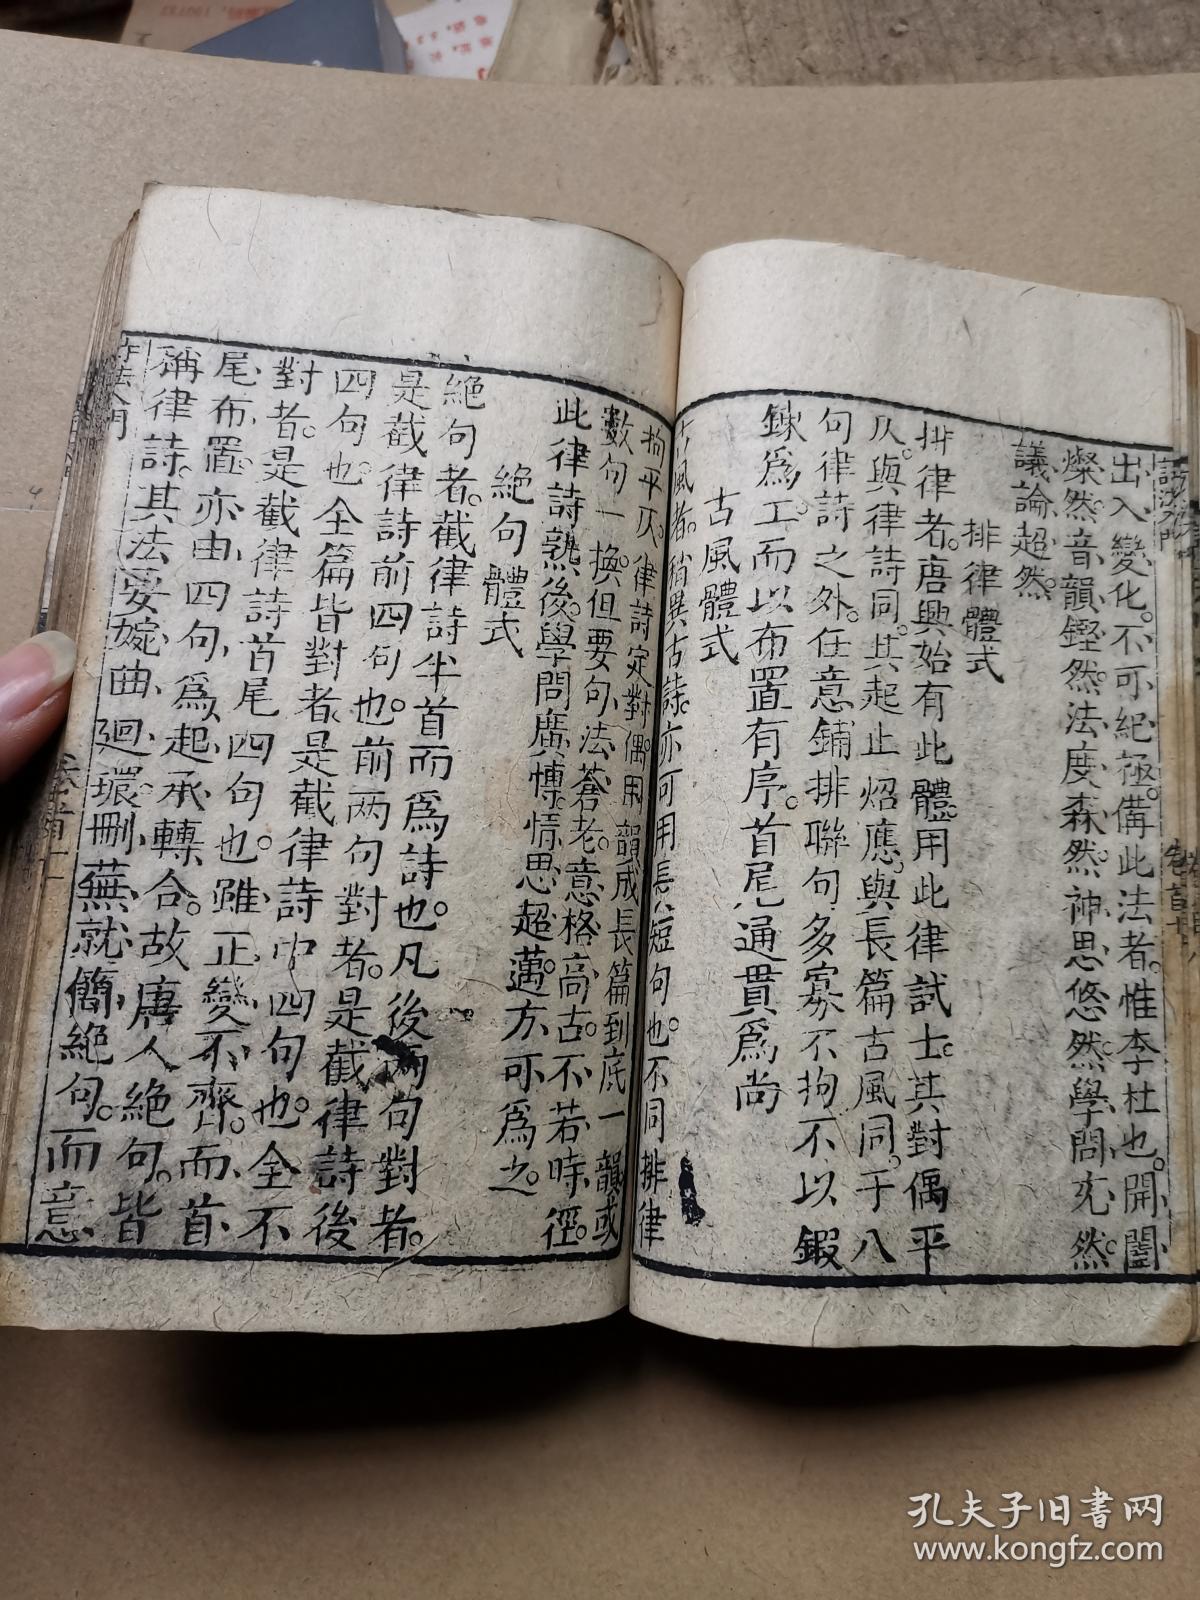 出入變化。不可紀極。備此法者。惟李杜也。開闔
燦然。音韻鏗然。法度森然。神思悠然。學問充然。
議論超然。
排律體式
排律者。唐興始有此體。用此律試士。其對偶平
仄。與律詩同。其起止炤應。與長篇古風同。于八
句律詩之外。任意鋪排。聯句多寡不拘。不以鍜
鍊爲工。而以布置有序。首尾通貫爲尚
古風體式
古風者。稍異古詩。亦可用長短句也。不同排律
拘平仄。律詩定對偶。用韻成長篇。到底一韻。或
數句一換。但要句法蒼老。意格高古。不若時徑。
此律詩熟後。學問廣博。情思超邁。方可爲之。
絕句體式
絕句者。截律詩半首而爲詩也。凡後兩句對者。
是截律詩前四句也。前兩句對者。是截律詩後
四句也。全篇皆對者。是截律詩中四句也。全不
對者。是截律詩首尾四句也。雖正變不齊。而首
尾布置。亦由四句。爲起承轉合。故唐人絕句。皆
稱律詩。其法要婉曲廻環。刪蕪就簡。絕句。而意
詩法入門
卷首十
孔夫子旧书网
www.kongfz.com